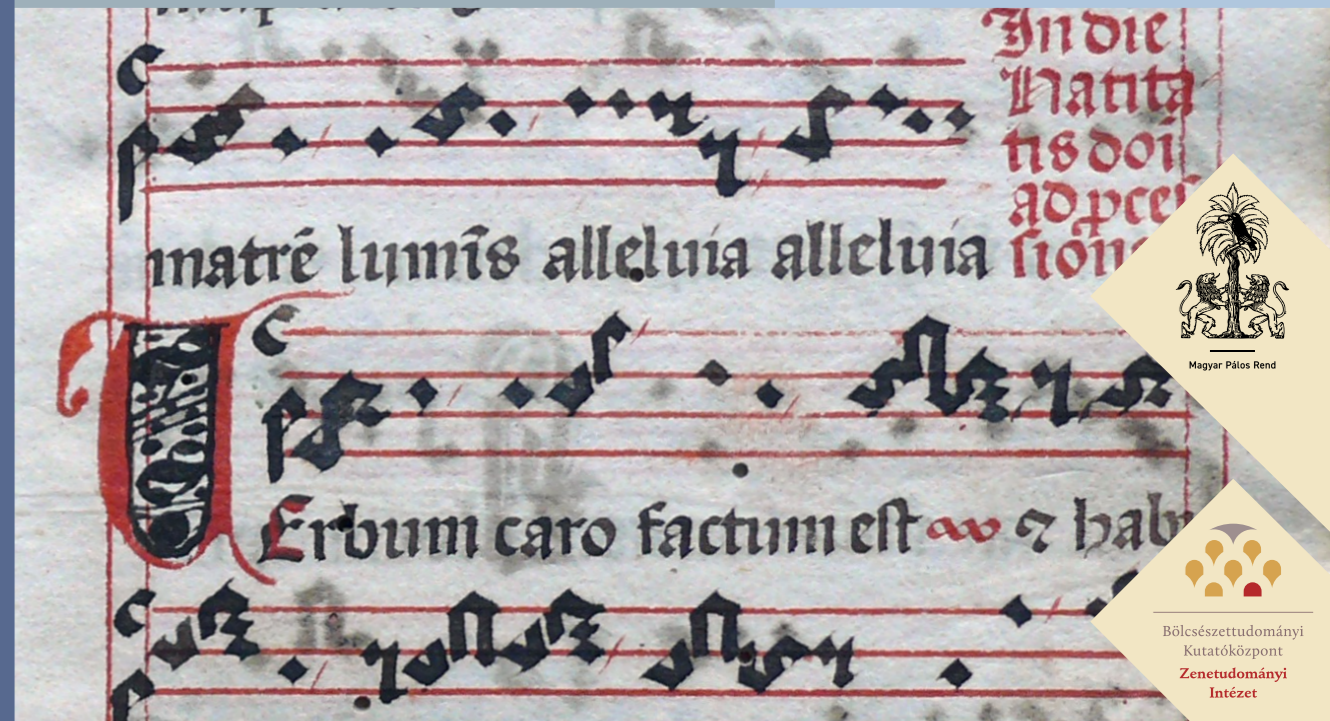 In die
Natita
tis doī
ad pces
sion
matrē lumīs alleluia alleluia
Verbum caro factum est ⁊ hab
Magyar Pálos Rend
Bölcsészettudományi
Kutatóközpont
Zenetudományi
Intézet